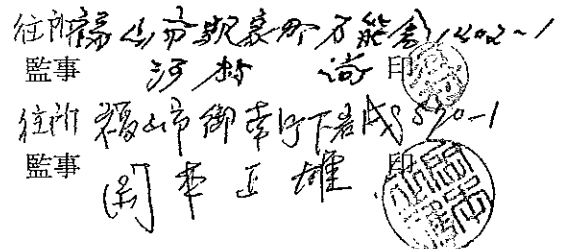 住所福山市駅家町万能倉1202-1
監事 河村 印
住所 福山市御幸町下岩成520-1
監事 岡本正雄 印